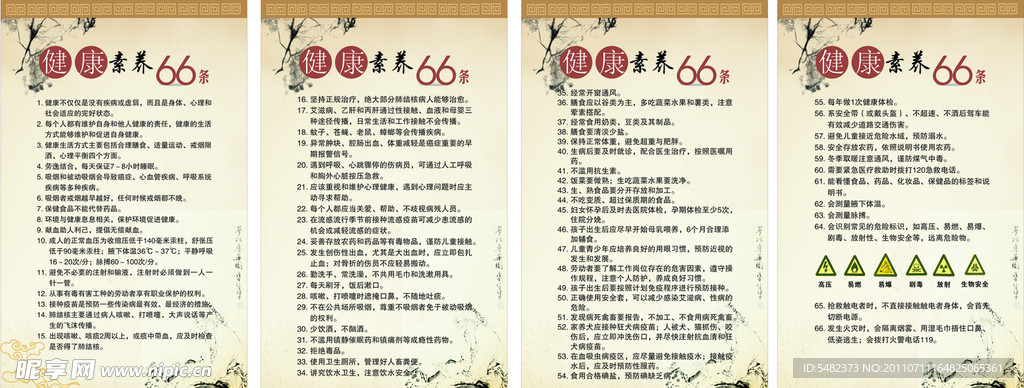 健康素养66条
1. 健康不仅仅是没有疾病或虚弱，而且是身体、心理和
社会适应的完好状态。
2. 每个人都有维护自身和他人健康的责任，健康的生活
方式能够维护和促进自身健康。
3. 健康生活方式主要包括合理膳食、适量运动、戒烟限
酒、心理平衡四个方面。
4. 劳逸结合，每天保证7～8小时睡眠。
5. 吸烟和被动吸烟会导致癌症、心血管疾病、呼吸系统
疾病等多种疾病。
6. 吸烟者戒烟越早越好，任何时候戒烟都不晚。
7. 保健食品不能代替药品。
8. 环境与健康息息相关，保护环境促进健康。
9. 献血助人利己，提倡无偿献血。
10. 成人的正常血压为收缩压低于140毫米汞柱，舒张压
低于90毫米汞柱；腋下体温36℃～37℃；平静呼吸
16～20次/分；脉搏60～100次/分。
11. 避免不必要的注射和输液，注射时必须做到一人一
针一管。
12. 从事有毒有害工种的劳动者享有职业保护的权利。
13. 接种疫苗是预防一些传染病最有效、最经济的措施。
14. 肺结核主要通过病人咳嗽、打喷嚏、大声说话等产
生的飞沫传播。
15. 出现咳嗽、咳痰2周以上，或痰中带血，应及时检查
是否得了肺结核。
健康素养66条
16. 坚持正规治疗，绝大部分肺结核病人能够治愈。
17. 艾滋病、乙肝和丙肝通过性接触、血液和母婴三
种途径传播，日常生活和工作接触不会传播。
18. 蚊子、苍蝇、老鼠、蟑螂等会传播疾病。
19. 异常肿块、腔肠出血、体重减轻是癌症重要的早
期报警信号。
20. 遇到呼吸、心跳骤停的伤病员，可通过人工呼吸
和胸外心脏按压急救。
21. 应该重视和维护心理健康，遇到心理问题时应主
动寻求帮助。
22. 每个人都应当关爱、帮助、不歧视病残人员。
23. 在流感流行季节前接种流感疫苗可减少患流感的
机会或减轻流感的症状。
24. 妥善存放农药和药品等有毒物品，谨防儿童接触。
25. 发生创伤性出血，尤其是大出血时，应立即包扎
止血；对骨折的伤员不应轻易搬动。
26. 勤洗手、常洗澡，不共用毛巾和洗漱用具。
27. 每天刷牙，饭后漱口。
28. 咳嗽、打喷嚏时遮掩口鼻，不随地吐痰。
29. 不在公共场所吸烟，尊重不吸烟者免于被动吸烟
的权利。
30. 少饮酒，不酗酒。
31. 不滥用镇静催眠药和镇痛剂等成瘾性药物。
32. 拒绝毒品。
33. 使用卫生厕所，管理好人畜粪便。
34. 讲究饮水卫生，注意饮水安全。
健康素养66条
35. 经常开窗通风。
36. 膳食应以谷类为主，多吃蔬菜水果和薯类，注意
荤素搭配。
37. 经常食用奶类、豆类及其制品。
38. 膳食要清淡少盐。
39. 保持正常体重，避免超重与肥胖。
40. 生病后要及时就诊，配合医生治疗，按照医嘱用
药。
41. 不滥用抗生素。
42. 饭菜要做熟；生吃蔬菜水果要洗净。
43. 生、熟食品要分开存放和加工。
44. 不吃变质、超过保质期的食品。
45. 妇女怀孕后及时去医院体检，孕期体检至少5次，
住院分娩。
46. 孩子出生后应尽早开始母乳喂养，6个月合理添
加辅食。
47. 儿童青少年应培养良好的用眼习惯，预防近视的
发生和发展。
48. 劳动者要了解工作岗位存在的危害因素，遵守操
作规程，注意个人防护，养成良好习惯。
49. 孩子出生后要按照计划免疫程序进行预防接种。
50. 正确使用安全套，可以减少感染艾滋病、性病的
危险。
51. 发现病死禽畜要报告，不加工、不食用病死禽畜
52. 家养犬应接种狂犬病疫苗；人被犬、猫抓伤、咬
伤后，应立即冲洗伤口，并尽快注射抗血清和狂
犬病疫苗。
53. 在血吸虫病疫区，应尽量避免接触疫水；接触疫
水后，应及时预防性服药。
54. 食用合格碘盐，预防碘缺乏病。
健康素养66条
55. 每年做1次健康体检。
56. 系安全带（或戴头盔）、不超速、不酒后驾车能
有效减少道路交通伤害。
57. 避免儿童接近危险水域，预防溺水。
58. 安全存放农药，依照说明书使用农药。
59. 冬季取暖注意通风，谨防煤气中毒。
60. 需要紧急医疗救助时拨打120急救电话。
61. 能看懂食品、药品、化妆品、保健品的标签和说
明书。
62. 会测量腋下体温。
63. 会测量脉搏。
64. 会识别常见的危险标识，如高压、易燃、易爆、
剧毒、放射性、生物安全等，远离危险物。
高压 易燃 易爆 剧毒 放射 生物安全
65. 抢救触电者时，不直接接触触电者身体，会首先
切断电源。
66. 发生火灾时，会隔离烟雾、用湿毛巾捂住口鼻、
低姿逃生；会拨打火警电话119。
昵享网 www.nipic.cn
ID:5482373 NO:20110711164825065361